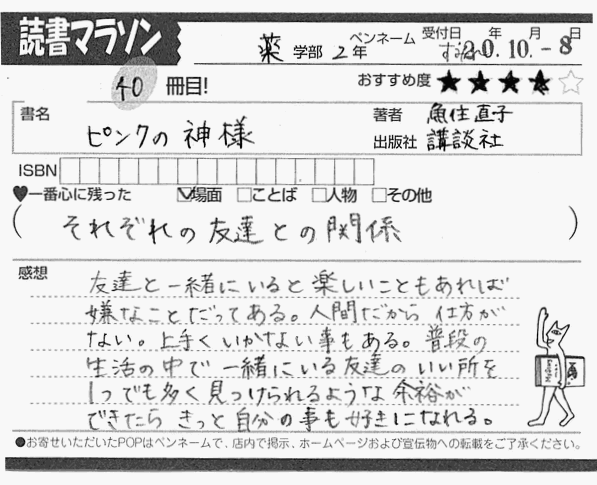 読書マラソン
薬 学部 2年 ペンネーム すみれ 受付日 年 月 日
20.10.-8
40 冊目! おすすめ度 ★★★★☆
書名 ピンクの神様
著者 魚住直子
出版社 講談社
ISBN
♥一番心に残った ☑場面 □ことば □人物 □その他
(それぞれの友達との関係)
感想
友達と一緒にいると楽しいこともあれば
嫌なことだってある。人間だから仕方が
ない。上手くいかない事もある。普段の
生活の中で一緒にいる友達のいい所を
1つでも多く見つけられるような余裕が
できたらきっと自分の事も好きになれる。
●お寄せいただいたPOPはペンネームで、店内で掲示、ホームページおよび宣伝物への転載をご了承ください。